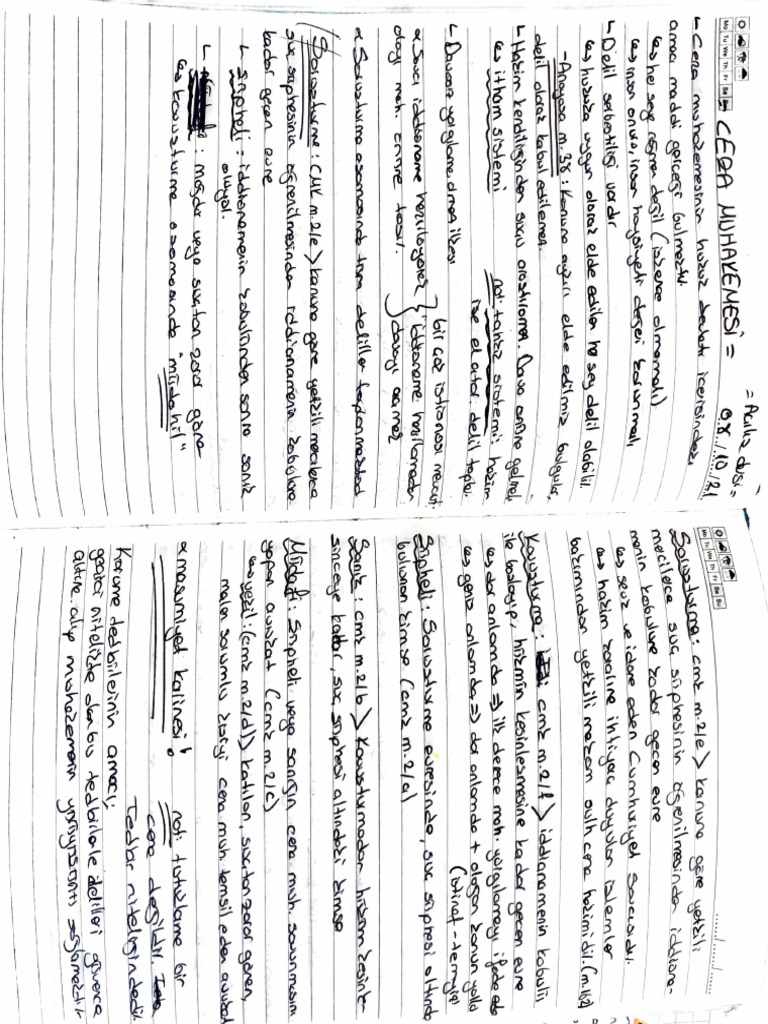 = Açılış dışı =
08/10/21
= CEZA MUHAKEMESİ =
Mo Tu We Th Fr Sa Su
↳ Ceza muhakemesinin hukuk devleti içerisindeki
amacı maddi gerçeği bulmaktır.
↳ her şeye rağmen değil (işkence olmamalı)
↳ insan onuru, insan haysiyeti değeri korunmalı
↳ Delil serbestliği vardır
↳ hukuka uygun olarak elde edilen her şey delil olabilir.
- Anayasa m.38: Kanuna aykırı elde edilmiş bulgular,
delil olarak kabul edilemez.
↳ Hakim kendiliğinden suçu araştıramaz. Dava önüne gelmeli
↳ itham sistemi
not: tahkik sistemi: hakim
ise el atar delil toplar
↳ Davasız yargılama olmaz ilkesi
bir çok istisnası mevcut.
α Savcı iddianame hazırlayarak } iddianame hazırlamadan
olayı mah. önüne taşır. } davayı açamaz
α Soruşturma aşamasında tüm deliller toplanmaktadır
(Soruşturma: CMK m.2/e > kanuna göre yetkili mercilerce
suç şüphesinin öğrenilmesinden iddianamenin kabulüne
kadar geçen evre
↳ şüpheli = iddianamenin kabulünden sonra sanık
oluyor.
↳ : mağdur veya suçtan zarar gören
↳ kovuşturma aşamasında "müdahil"
Mo Tu We Th Fr Sa Su
Soruşturma: cmk m.2/e > kanuna göre yetkili
mercilerce suç şüphesinin öğrenilmesinden iddiana-
menin kabulüne kadar geçen evre
↳ sevk ve idare eden Cumhuriyet Savcısıdır.
↳ hakim kararına ihtiyaç duyulan işlemler
bakımından yetkili makam sulh ceza hakimidir. (m.162)
Kovuşturma: cmk m.2/f > iddianamenin kabulü
ile başlayıp, hükmün kesinleşmesine kadar geçen evre
↳ dar anlamda => ilk derece mah. yargılamayı ifade eder
↳ geniş anlamda => dar anlamda + olağan kanun yolla
(istinaf - temyiz)
Şüpheli: Soruşturma evresinde, suç şüphesi altında
bulunan kimse (cmk m.2/a)
Sanık: cmk m.2/b > Kovuşturmadan hüküm kesinle-
şinceye kadar, suç şüphesi altındaki kimse
Müdafi: Şüpheli veya sanığın ceza muh. savunmasını
yapan avukat (cmk m.2/c)
↳ vekil: (cmk m.2/d) > katılan, suçtan zarar gören,
malen sorumlu kişiyi ceza muh. temsil eden avukat
α masumiyet karinesi!
not: tutuklama bir
ceza değildir.
Tedbir niteliğindedir.
Koruma tedbirlerinin amacı;
geçici nitelikte olan bu tedbirlerle delilleri güvence
altına alıp muhakemenin yürüyüşünü sağlamaktır